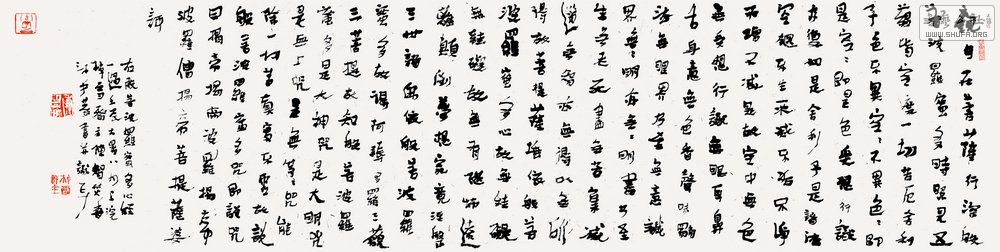 自在菩薩行深般
若波羅蜜多時照見五
蘊皆空度一切苦厄舍利
子色不異空空不異色色即
是空空即是色受想行識
亦復如是舍利子是諸法
空相不生不滅不垢不淨
不增不減是故空中無色
無受想行識無眼耳鼻
舌身意無色聲香味觸
法無眼界乃至無意識
界無無明亦無無明盡乃至
無老死盡無苦集滅
道無智亦無得以無所
得故菩提薩埵依般若
波羅蜜多心故無罣
無罣礙故無有恐怖遠
離顛倒夢想究竟涅槃
三世諸佛依般若波羅
蜜多故得阿耨多羅三藐
三菩提故知般若波羅
蜜多是大神咒是大明咒
是無上咒是無等等咒能
除一切苦真實不虛故說
般若波羅蜜多咒即說咒
曰揭帝揭帝波羅揭帝
波羅僧揭帝菩提薩婆
訶
右般若波羅蜜多心經
WWW.SHUFA.ORG